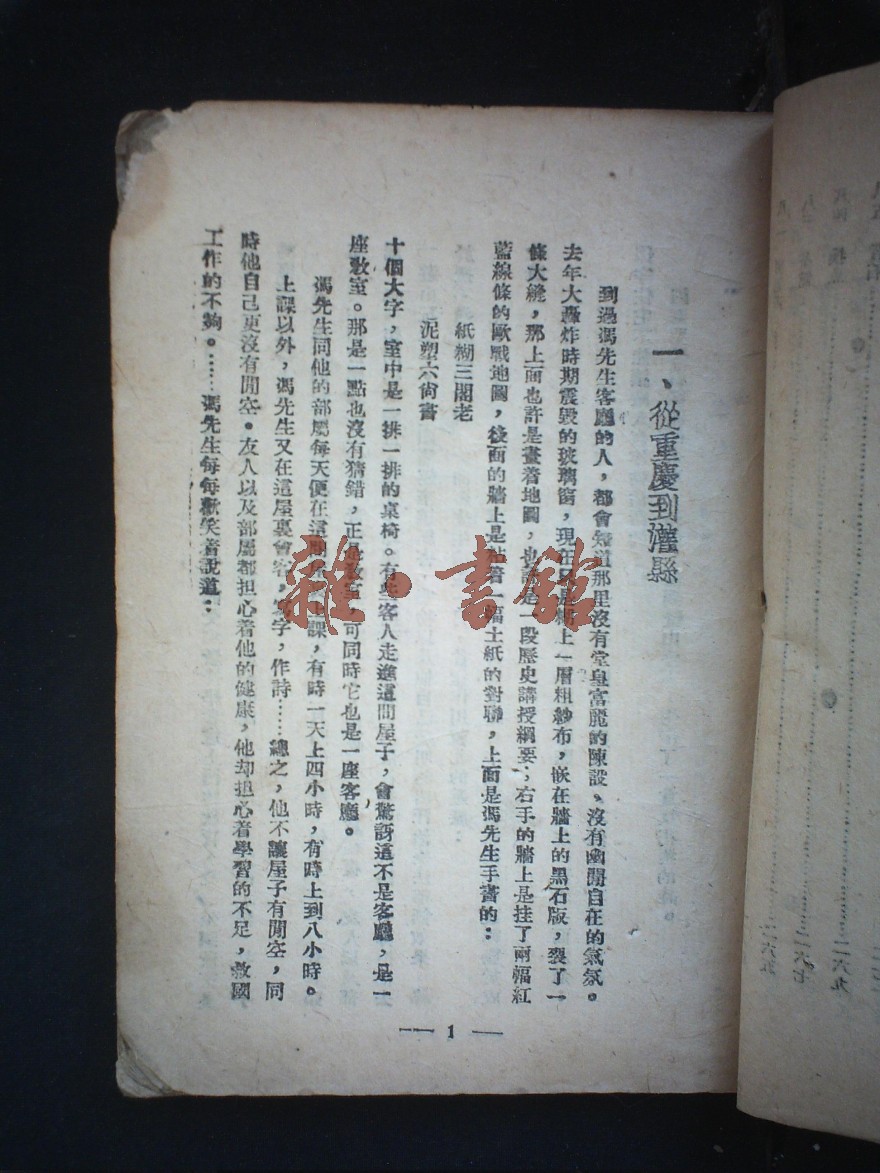 一、從重慶到灌縣
到過馮先生客廳的人，都會知道那里沒有堂皇富麗的陳設。沒有幽閒自在的氣氛。
去年大轟炸時期震毀的玻璃窗，現在又是糊上一層粗紗布，嵌在牆上的黑石版，裂了一
條大縫，那上面也許是畫着地圖，也許是一段歷史講授綱要；右手的牆上是挂了兩幅紅
藍線條的歐戰地圖，後面的牆上是貼着一幅土紙的對聯，上面是馮先生手書的：
紙糊三閣老
泥塑六尙書
十個大字，室中是一排一排的桌椅。有些客人走進這間屋子，會驚訝這不是客廳，是一
座教室。那是一點也沒有猜錯，正是教室，可同時它也是一座客廳。
馮先生同他的部屬每天便在這間屋裏上課，有時一天上四小時，有時上到八小時。
上課以外，馮先生又在這屋裏會客，寫字，作詩……總之，他不讓屋子有閒空，同
時他自己更沒有閒空。友人以及部屬都担心着他的健康，他却担心着學習的不足，救國
工作的不夠。……馮先生每每歡笑着說道：
— 1 —
雜·書館
二六九
二六七
二六五